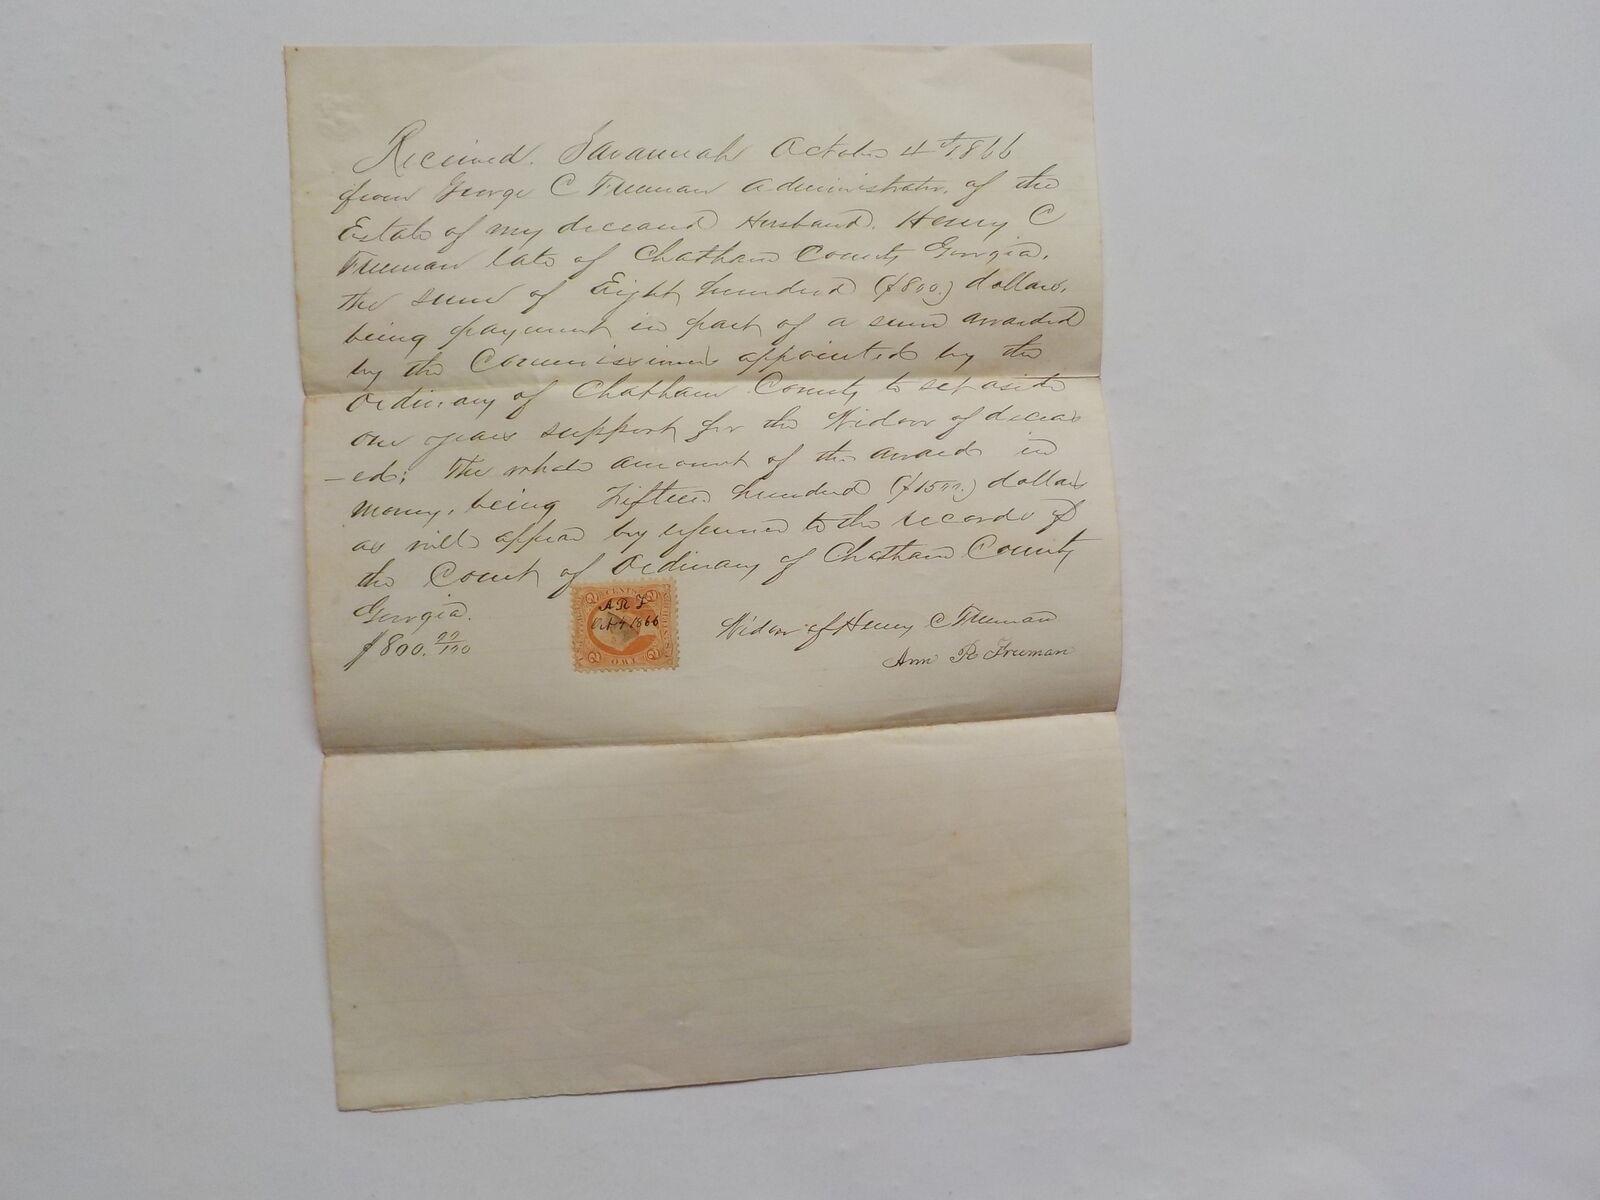 Received. Savannah October 4th 1866
from George C Freeman Administrator, of the
Estate of my deceased Husband. Henry C
Freeman late of Chatham County Georgia.
the sum of Eight hundred ($800.) dollars,
being payment in part of a sum awarded
by the Commissioners appointed by the
Ordinary of Chatham County to set aside
one years support for the Widow of deceas
-ed; The whole amount of the award in
money, being Fifteen hundred ($1500.) dollars
as will appear by reference to the records of
the Court of Ordinary of Chatham County
Georgia.
$800.00/100
A R F
Oct 4 1866
TWO
CENTS
2
Widow of Henry C Freeman
Ann R Freeman